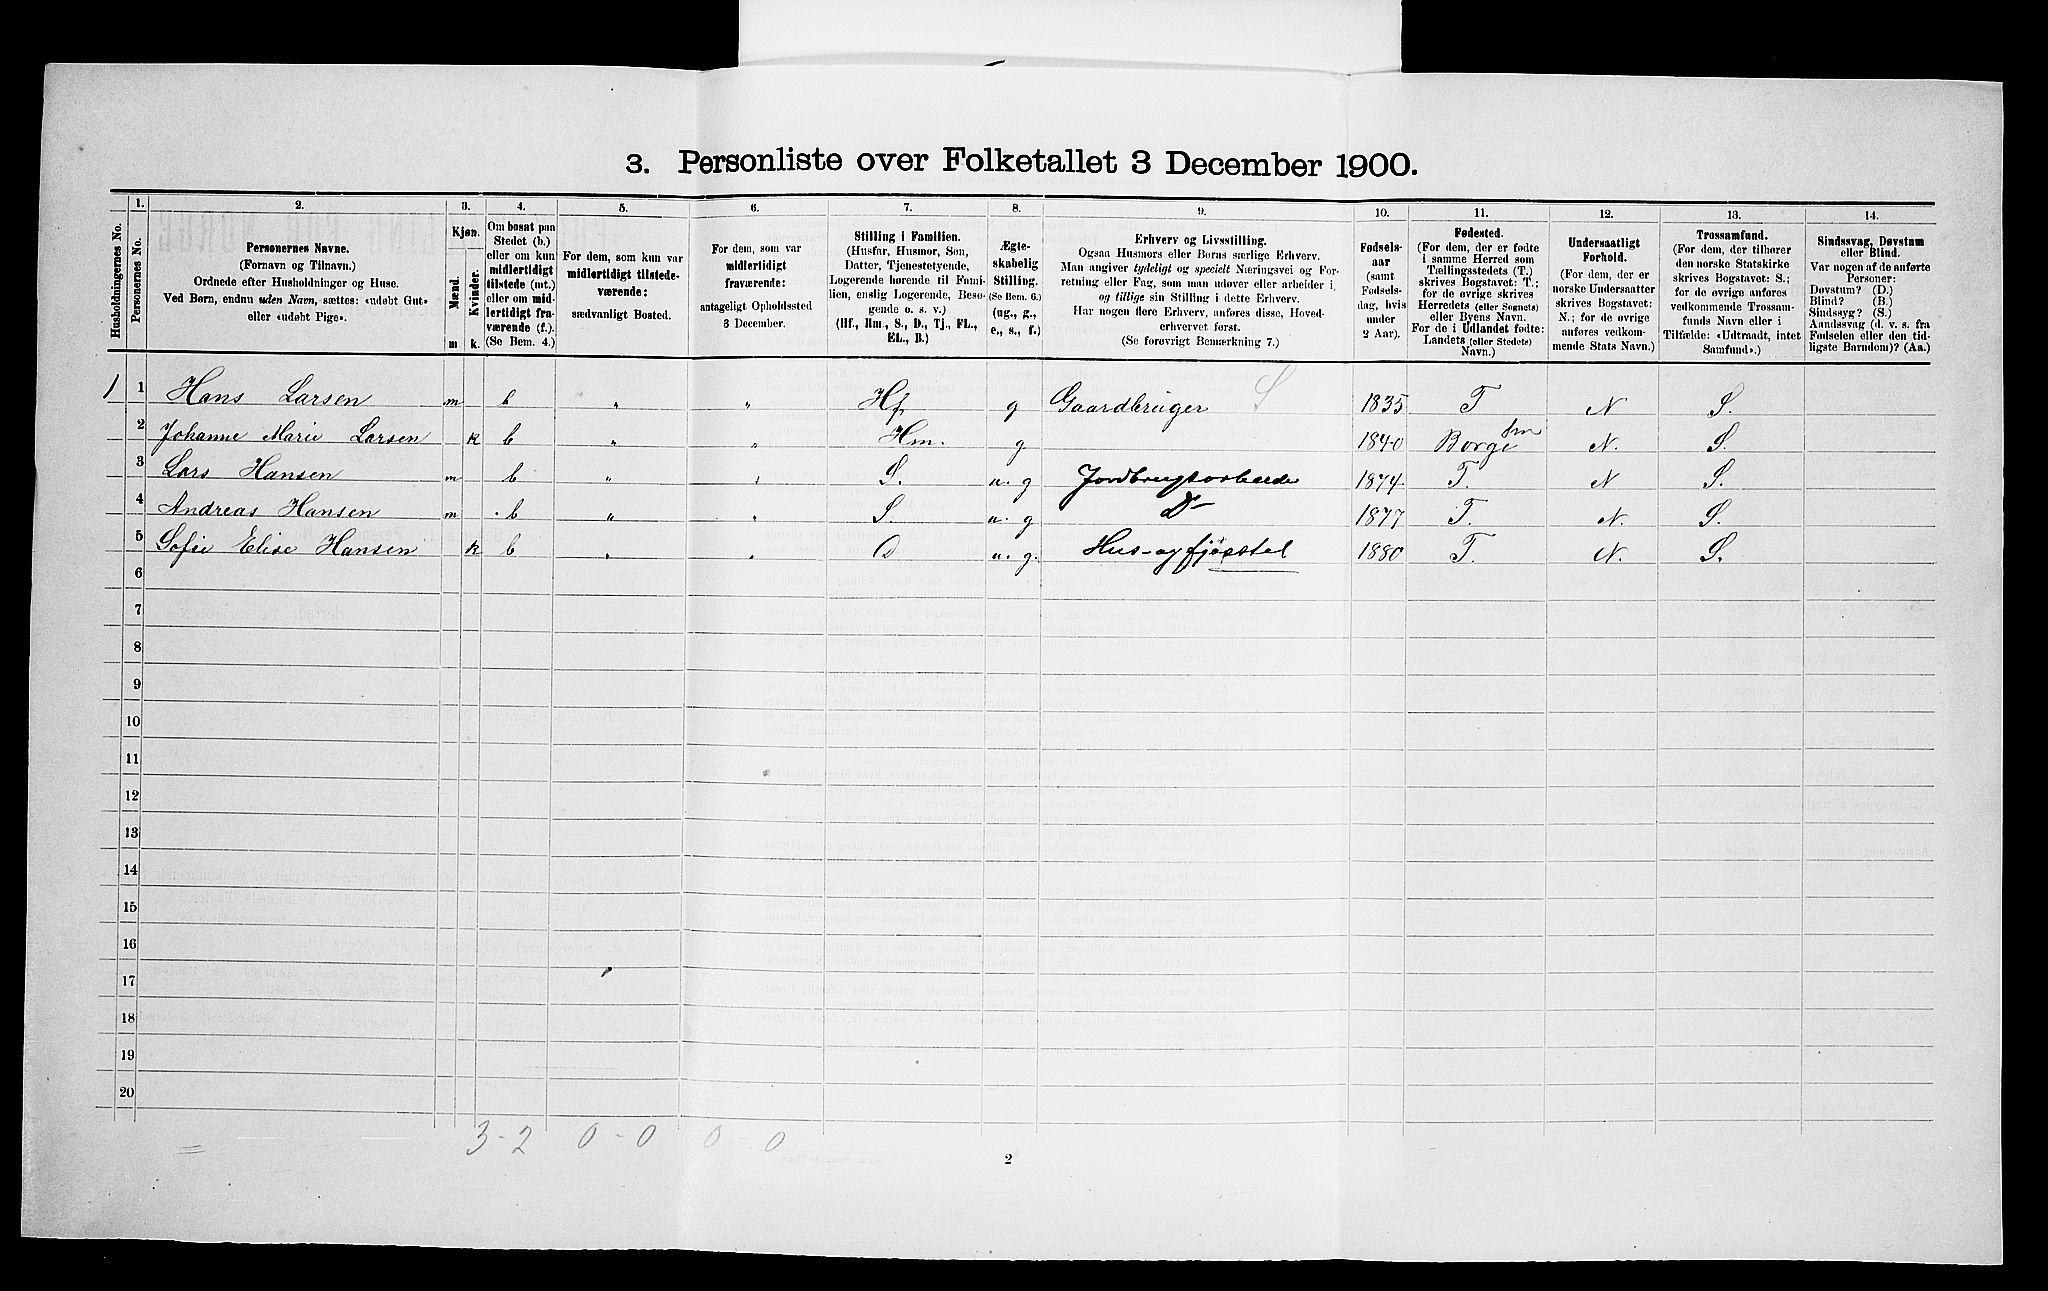 3. Personliste over Folketallet 3 December 1900.
Husholdningernes No.
1. Personernes No.
2. Personernes Navne.
(Fornavn og Tilnavn.)
Ordnede efter Husholdninger og Huse.
Ved Børn, endnu uden Navn, sættes: «udøbt Gut»
eller «udøbt Pige».
3. Kjøn.
Mænd. m
Kvinder. k.
4. Om bosat paa
Stedet (b.)
eller om kun
midlertidigt
tilstede (mt.)
eller om mid-
lertidigt fra-
værende (f.).
(Se Bem. 4.)
5. For dem, som kun var
midlertidigt tilstede-
værende:
sædvanligt Bosted.
6. For dem, som var
midlertidigt
fraværende:
antageligt Opholdssted
3 December.
7. Stilling i Familien.
(Husfar, Husmor, Søn,
Datter, Tjenestetyende,
Logerende hørende til Fami-
lien, enslig Logerende, Besø-
gende o. s. v.)
(Hf., Hm., S., D., Tj., FL.,
EL., B.)
8. Ægte-
skabelig
Stilling.
(Se Bem. 6.)
(ug., g.,
e., s., f.)
9. Erhverv og Livsstilling.
Ogsaa Husmors eller Børns særlige Erhverv.
Man angiver tydeligt og specielt Næringsvei og For-
retning eller Fag, som man udøver eller arbeider i,
og tillige sin Stilling i dette Erhverv.
Har nogen flere Erhverv, anføres disse, Hoved-
erhvervet først.
(Se forøvrigt Bemærkning 7.)
10. Fødsels-
aar
(samt
Fødsels-
dag, hvis
under
2 Aar).
11. Fødested.
(For dem, der er fødte
i samme Herred som
Tællingsstedets (T.)
skrives Bogstavet: T.;
for de øvrige skrives
Herredets (eller Sognets)
eller Byens Navn.
For de i Udlandet fødte:
Landets (eller Stedets)
Navn.)
12. Undersaatligt
Forhold.
(For dem, der er
norske Undersaatter
skrives Bogstavet:
N.; for de øvrige
anføres vedkom-
mende Stats Navn.)
13. Trossamfund.
(For dem, der tilhører
den norske Statskirke
skrives Bogstavet: S.;
for de øvrige anføres
vedkommende Trossam-
funds Navn eller i
Tilfælde: «Udtraadt, intet
Samfund».)
14. Sindssvag, Døvstum
eller Blind.
Var nogen af de anførte
Personer:
Døvstum? (D.)
Blind? (B.)
Sindssyg? (S.)
Aandssvag (d. v. s. fra
Fødselen eller den tid-
ligste Barndom)? (Aa.)
1 1 Hans Larsen m b " " Hf g Gaardbruger S 1835 T N S.
2 Johanne Marie Larsen k b " " Hm. g 1840 Borge N. S.
3 Lars Hansen m b " " S. u. g Jordbrugsarbeider 1874 T. N S.
4 Andreas Hansen m b " " S. u. g Do 1877 T. N. S.
5 Sofie Elise Hansen k b " " D u. g. Hus- og fjøsstel 1880 T. N. S.
6
7
8
9
10
11
12
13
14
15
16
17
18
19
20
3-2 0-0 0-0
2